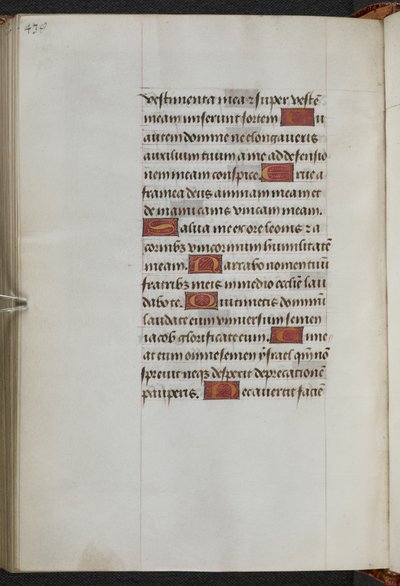 430
vestimenta mea ⁊ super vestē
meam miserunt sortem Tu
autem domine ne elongaveris
auxilium tuum a me ad defensio
nem meam conspice. Erue a
framea deus animam meam et
de manu canis vnicam meam.
Salva me ex ore leonis ⁊ a
cornibꝫ vnicornium humilitatē
meam. Narrabo nomen tuū
fratribꝫ meis in medio ecclīe lau
dabo te. Qui timetis dominū
laudate eum vniversum semen
iacob glorificate eum. Time
at eum omne semen ysrael qm̄ nō
sprevit neqꝫ despexit deprecationē
pauperis. Nec avertit faciē